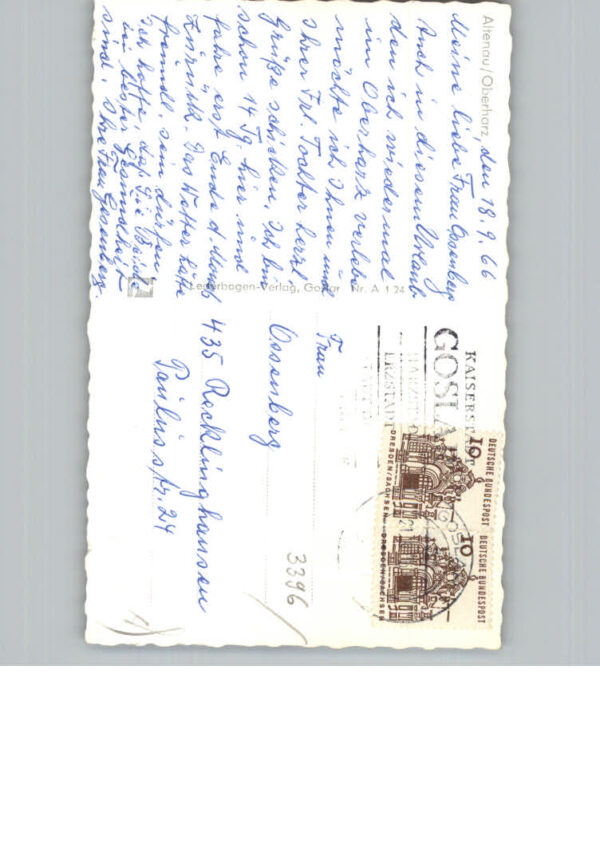 Altenau/Oberharz, den 18.9.66
Meine liebe Frau Ossenberg
Auch in diesem Urlaub
den ich wiedermal
im Oberharz verlebe
möchte ich Ihnen und
Ihrer Frl. Tochter herzl.
Grüße schicken. Ich bin
schon 14 Tg. hier und
fahre erst Ende d. Monats
zurück. Das Wetter
freundl. sein dürfen.
Ich hoffe, das Sie Beide
in bester Gesundheit
sind. Ihre Frau
Verlag, Goslar Nr. A 124
KAISERSTADT
GOSLAR
HARZ
ERZSTADT
10
DEUTSCHE BUNDESPOST
DRESDEN/SACHSEN
10
DEUTSCHE BUNDESPOST
DRESDEN/SACHSEN
Frau
Ossenberg
435 Recklinghausen
Paulusstr. 24
3396